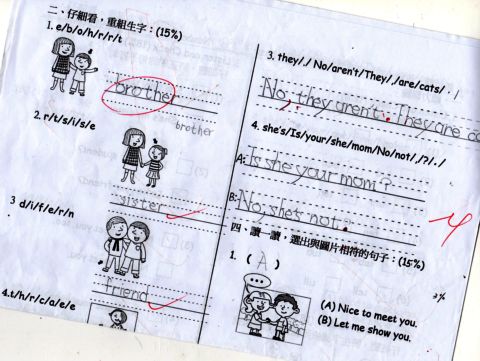 二、仔細看，重組生字：(15%)
1. e/b/o/h/r/r/t
brother
brother
2. r/t/s/i/s/e
sister
3 d/i/f/e/r/n
friend
4.t/h/r/c/a/e/e
3. they/,/ No/aren't/They/./are/cats/.
No, they aren't. They are
4. she's/Is/your/she/mom/No/not/,/?/./
A: Is she your mom?
B: No, she's not.
四、讀一讀，選出與圖片相符的句子：(15%)
1. ( A )
(A) Nice to meet you.
(B) Let me show you.